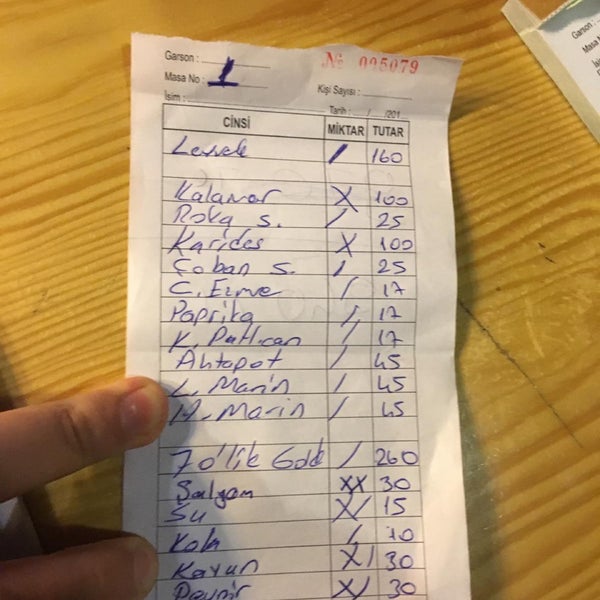 Garson :
№ 005079
Masa No : 1
Kişi Sayısı :
İsim :
Tarih : / /201
CİNSİ MİKTAR TUTAR
Levrek / 160
Kalamar X 100
Roka S. / 25
Karides X 100
Çoban S. / 25
C. Ezme / 17
Paprika / 17
K. Patlıcan / 17
Ahtapot / 45
L. Marin / 45
H. Marin / 45
70'lik Gold / 260
Şalgam XX 30
Su X/ 15
Kola / 10
Kavun X/ 30
Peynir X/ 30
Garson :
Masa N